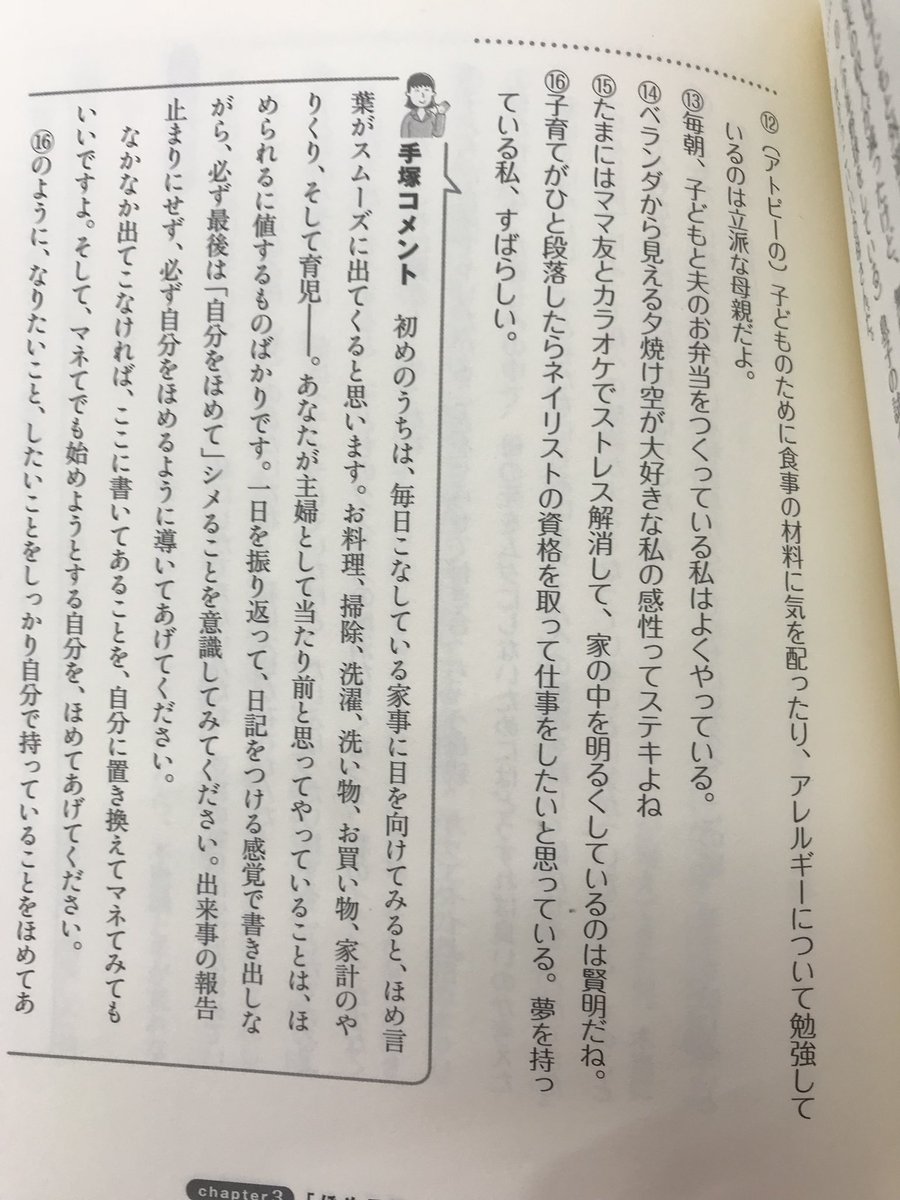 ⑫（アトピーの）子どものために食事の材料に気を配ったり、アレルギーについて勉強して
いるのは立派な母親だよ。
⑬毎朝、子どもと夫のお弁当をつくっている私はよくやっている。
⑭ベランダから見える夕焼け空が大好きな私の感性ってステキよね
⑮たまにはママ友とカラオケでストレス解消して、家の中を明るくしているのは賢明だね。
⑯子育てがひと段落したらネイリストの資格を取って仕事をしたいと思っている。夢を持っ
ている私、すばらしい。
手塚コメント　初めのうちは、毎日こなしている家事に目を向けてみると、ほめ言
葉がスムーズに出てくると思います。お料理、掃除、洗濯、洗い物、お買い物、家計のや
りくり、そして育児――。あなたが主婦として当たり前と思ってやっていることは、ほ
められるに値するものばかりです。一日を振り返って、日記をつける感覚で書き出しな
がら、必ず最後は「自分をほめて」シメることを意識してみてください。出来事の報告
止まりにせず、必ず自分をほめるように導いてあげてください。
なかなか出てこなければ、ここに書いてあることを、自分に置き換えてマネてみても
いいですよ。そして、マネてでも始めようとする自分を、ほめてあげてください。
⑯のように、なりたいこと、したいことをしっかり自分で持っていることをほめてあ
chapter3